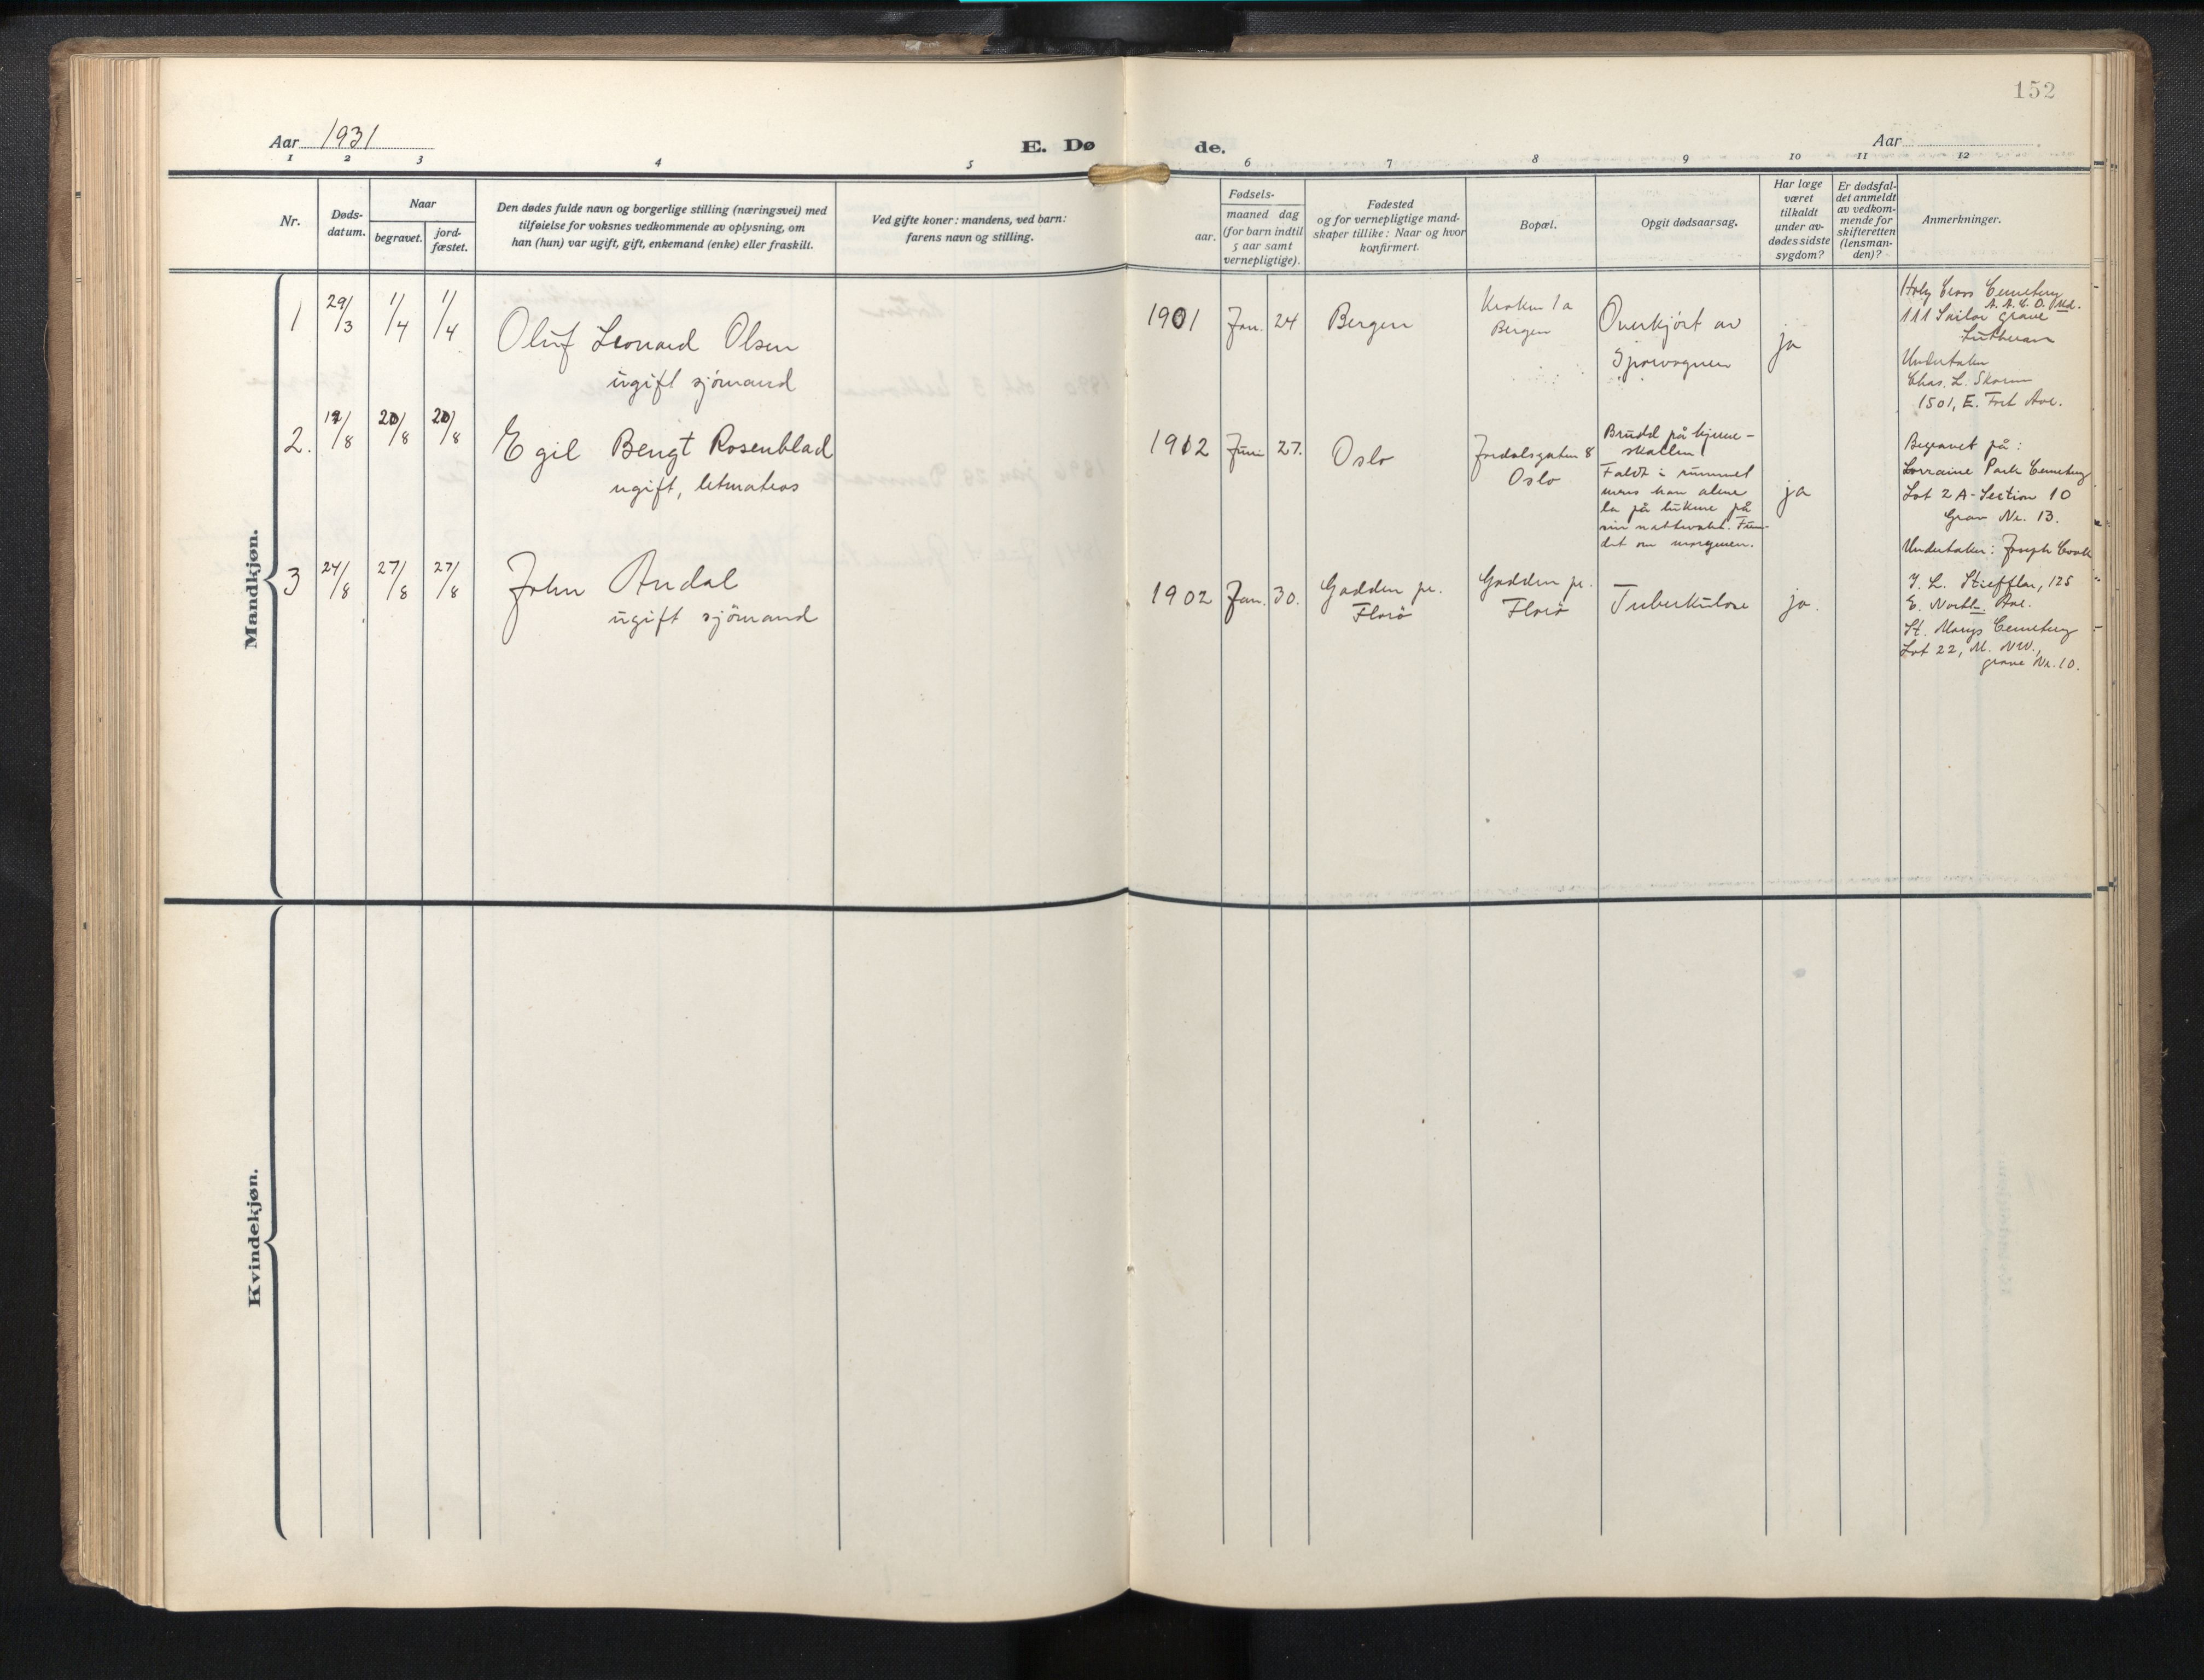 152
Aar 1931
E. Dø
de.
Aar
1 2 3 4 5 6 7 8 9 10 11 12
Nr.
Døds-
datum.
Naar
begravet.
jord-
fæstet.
Den dødes fulde navn og borgerlige stilling (næringsvei) med
tilføielse for voksnes vedkommende av oplysning, om
han (hun) var ugift, gift, enkemand (enke) eller fraskilt.
Ved gifte koner: mandens, ved barn:
farens navn og stilling.
Fødsels-
aar.
maaned dag
(for barn indtil
5 aar samt
vernepligtige).
Fødested
og for vernepligtige mand-
skaper tillike: Naar og hvor
konfirmert.
Bopæl.
Opgit dødsaarsag.
Har læge
været
tilkaldt
under av-
dødes sidste
sygdom?
Er dødsfal-
det anmeldt
av vedkom-
mende for
skifteretten
(lensman-
den)?
Anmerkninger.
Mandkjøn.
1 29/3 1/4 1/4
Oluf Leonard Olsen
ugift sjömand
1901 Jan. 24 Bergen
Kroken 1a
Bergen
Overkjört av
Sporvognen
ja
Holy Cross Cemetery
A. A. C. O. Md.
111 Sailor grave
Lutheran
Undertaker
Chas. L.
1501, E. Fort Ave.
2. 19/8 20/8 20/8
Egil Bengt Rosenblad
ugift, letmatros
1912 Juni 27. Oslo
Jordalsgaten 8
Oslo
Brudd på hjerne-
skallen!
Faldt i rummet
mens han alene
la på lukene på
sin nattevakt. Fun-
det om morgenen.
ja
Begravet på:
Lorraine Park Cemetery
Lot 2 A - Section 10
Grav Nr. 13.
Undertaker: Joseph Cook
3 24/8 27/8 27/8
John Andal
ugift sjömand
1902 Jan. 30.
Gadden pr.
Florö
Gadden pr.
Florö
Tuberkulose
ja.
125
E. North Ave.
St. Marys Cemetery
Lot 22, M. NW.,
grave Nr. 10.
Kvindekjøn.